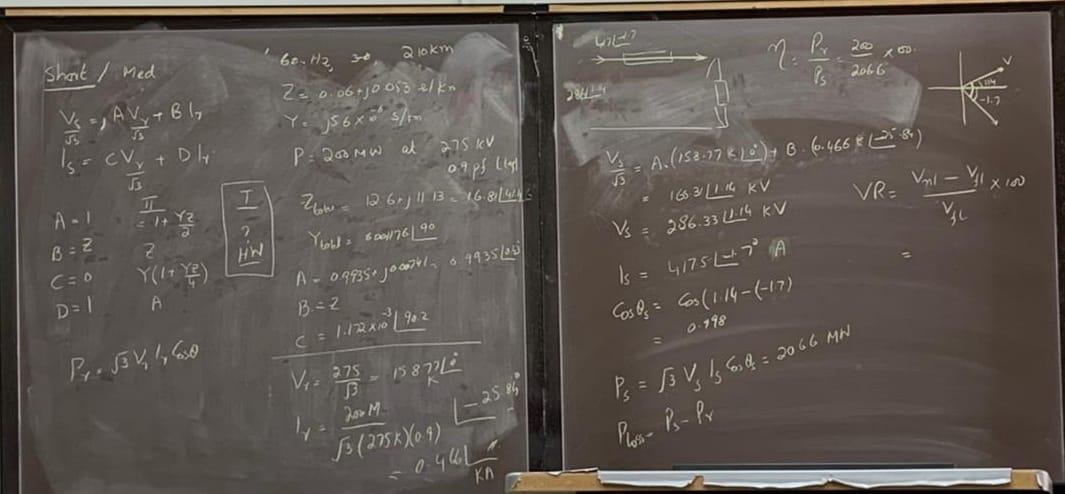 Short / Med
Vs/√3 = A Vr/√3 + B Ir
Is = C Vr/√3 + D Ir
π
A = 1 = 1 + YZ/2
B = Z Z
C = 0 Y(1 + YZ/4)
D = 1 A
T
?
HW
Pr = √3 Vr Ir Cosθ
60-Hz, 3Φ 210km
Z = 0.06 + j0.053
Y = j56 x 10
P = 200 MW at 275 kV
0.9 pf (lag)
Ztotal = 12.6 + j11.13 = 16.81∠41.4
Ytotal = ∠90
A = 0.9935 + j0.00741 = 0.9935∠
B = Z
C = 1.172 x 10⁻³ ∠90.2
Vr = 275/√3 = 158.77∠0° K
Ir = 200M/√3(275K)(0.9) ∠-25.84°
= 0.466∠ KA
∠-1.7
∠1.14
η = Pr/Ps = 200/206.6 x 100
V
1.14
-1.7
Vs/√3 = A.(158.77 K∠0°) + B.(0.466 K∠-25.84)
= 165.31∠1.14 KV
Vs = 286.33∠1.14 KV
Is = 417.5∠-1.7° A
Cosθs = Cos(1.14-(-1.7)
= 0.998
Ps = √3 Vs Is Cosθs = 206.6 MW
Ploss = Ps - Pr
VR = Vnl - Vfl / Vfl x 100
=